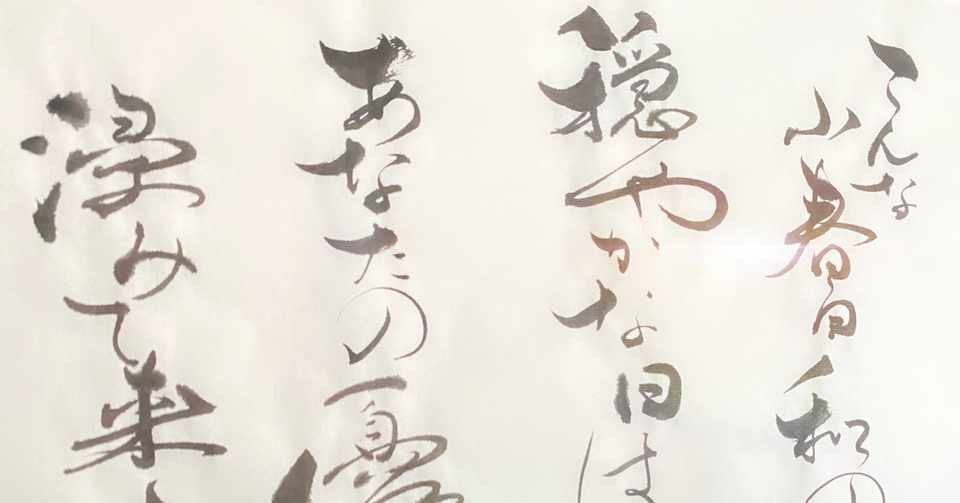 こんな
小春日和の
穏やかな日は
あなたの優
浸みて来